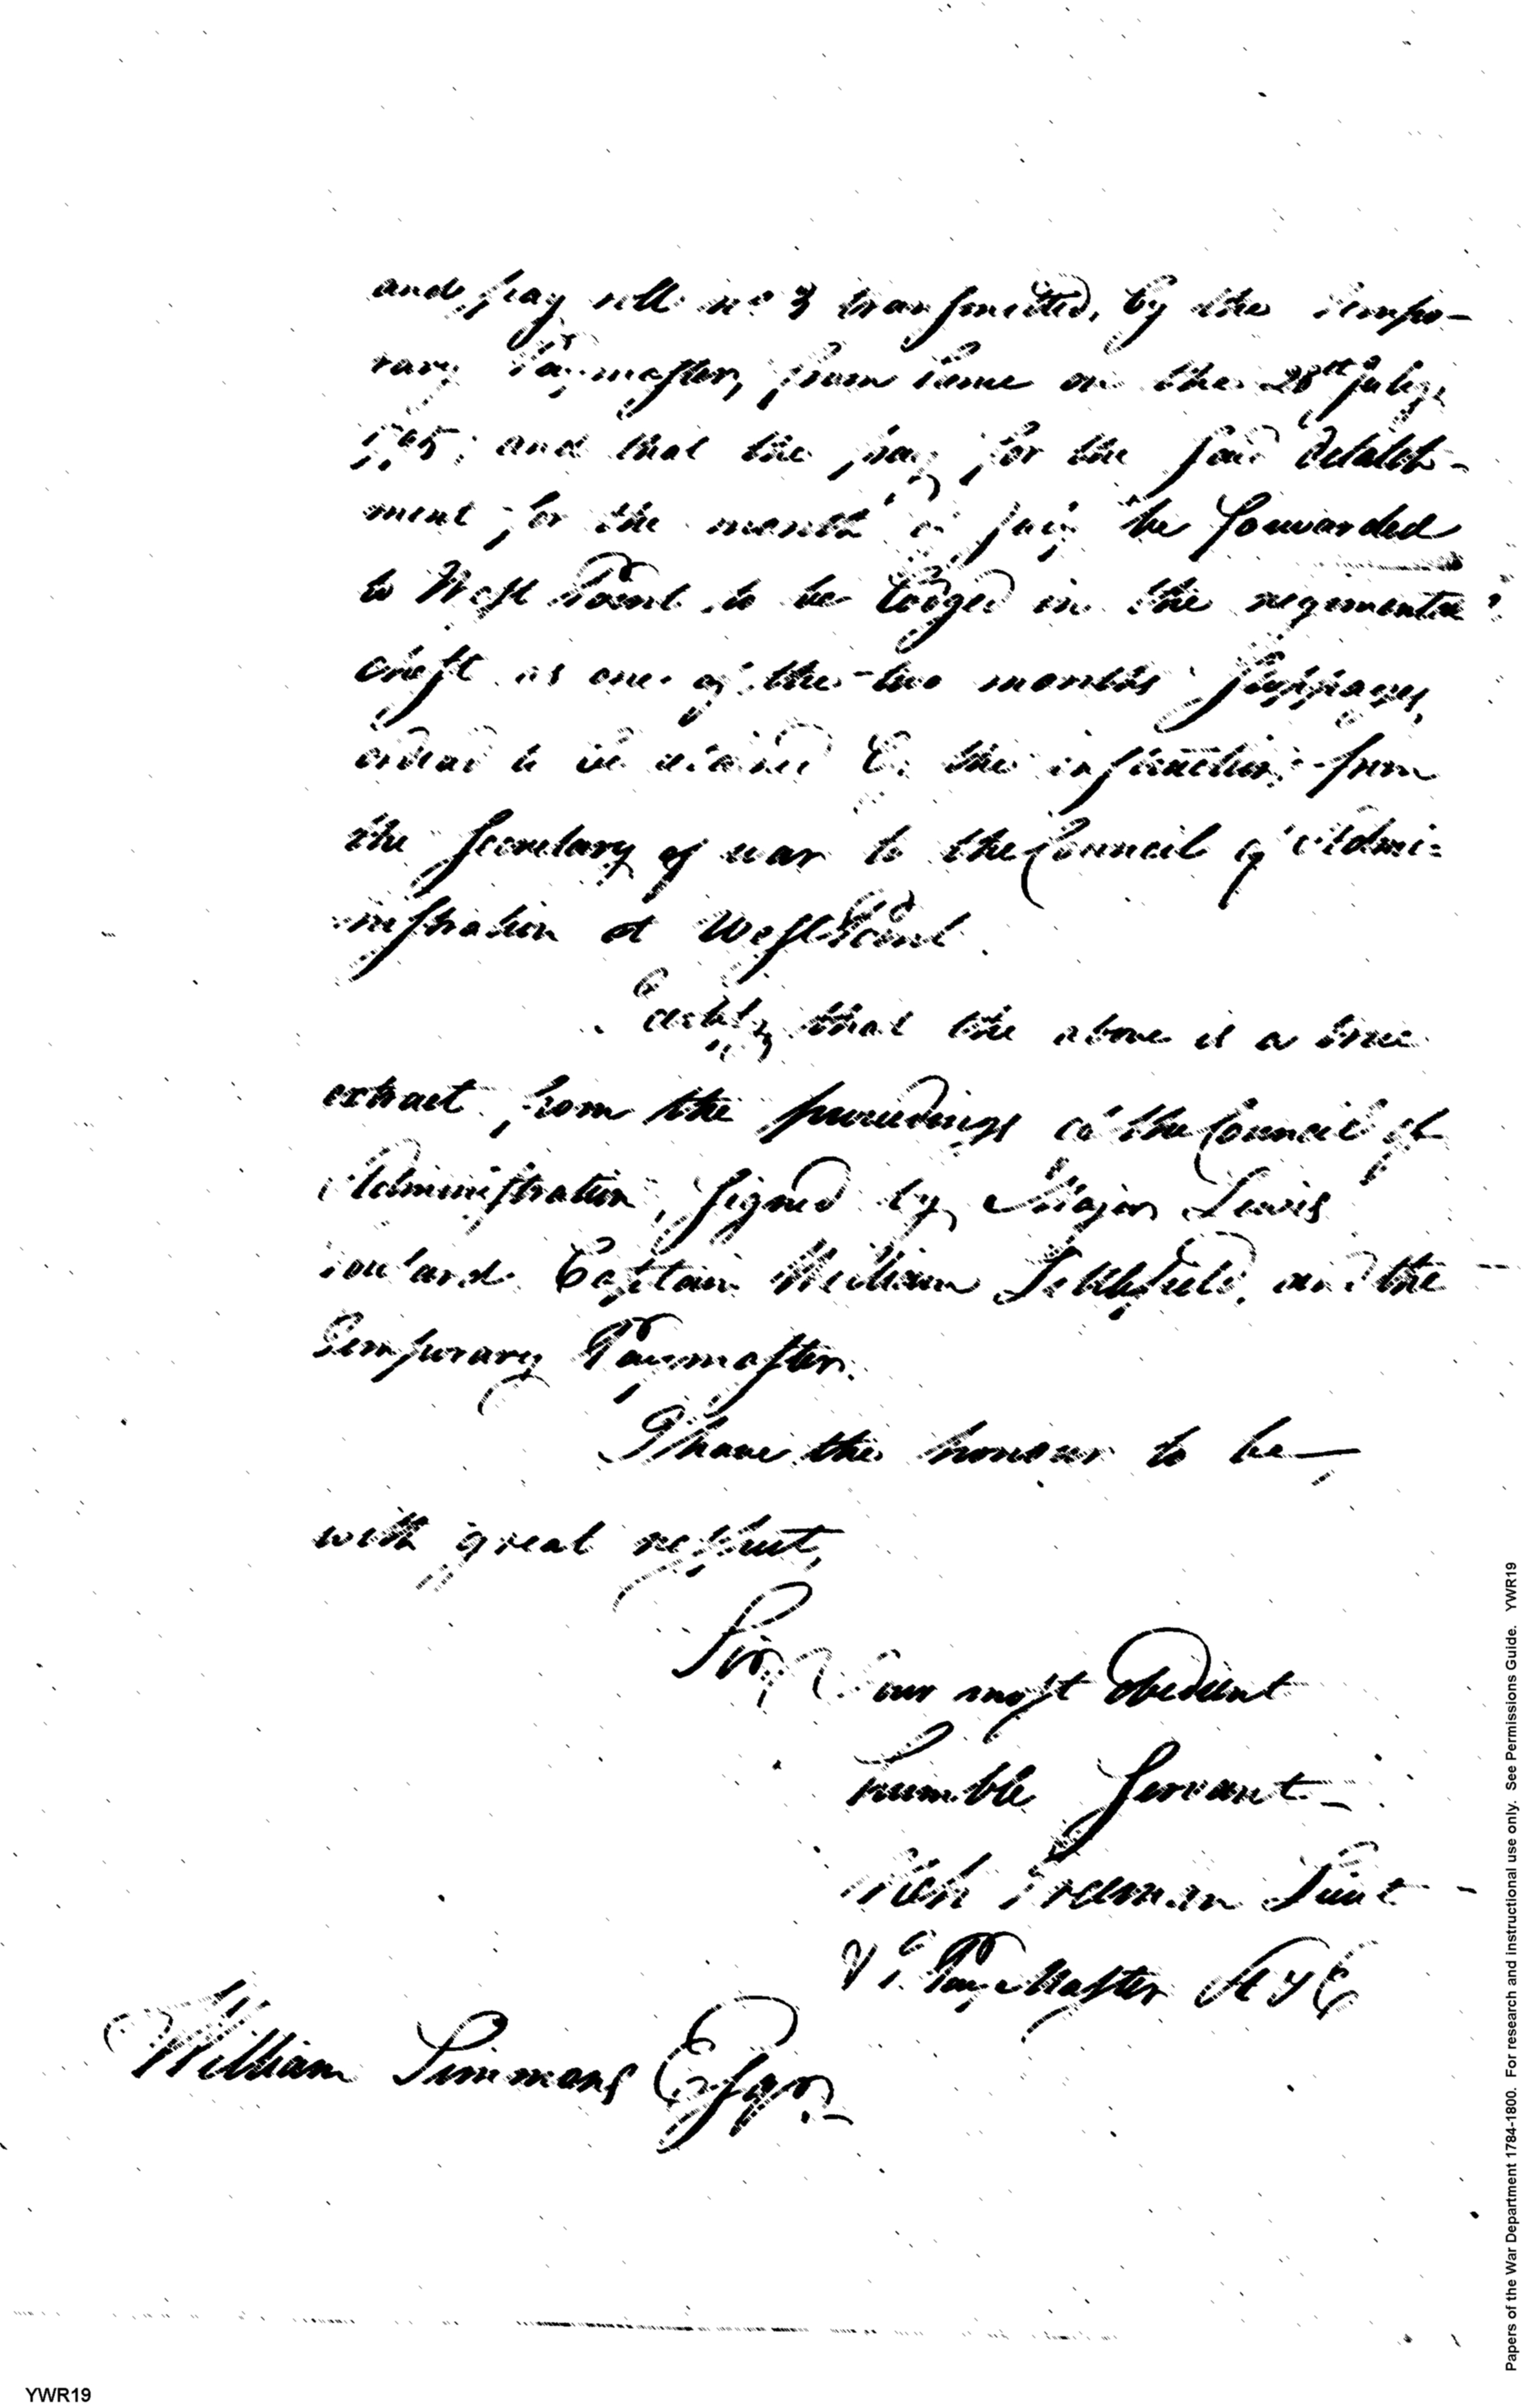 and pay roll no 3 transmitted, by the Tempo-
rary Paymaster, from him on the 28th July,
1795; and that the pay for the said detatch-
ment for the month of July be forwarded
to West Point to be lodged in the regimental
chest as one of the two months stoppages,
ordered to be retained by the instructions from
the Secretary of war to the Council of Admi-
nistration at West Point.
I certify that the above is a true
extract from the proceedings of the Council of
Administration, signed by Major Lewis
Captain William Littlefield, and the
Temporary Paymaster.
I have the honour to be
with great respect,
Sir, Your most obedient
humble Servant
Freeman Lieut
PayMaster
William Simmons Esqr.
Papers of the War Department 1784-1800. For research and instructional use only. See Permissions Guide. YWR19
YWR19